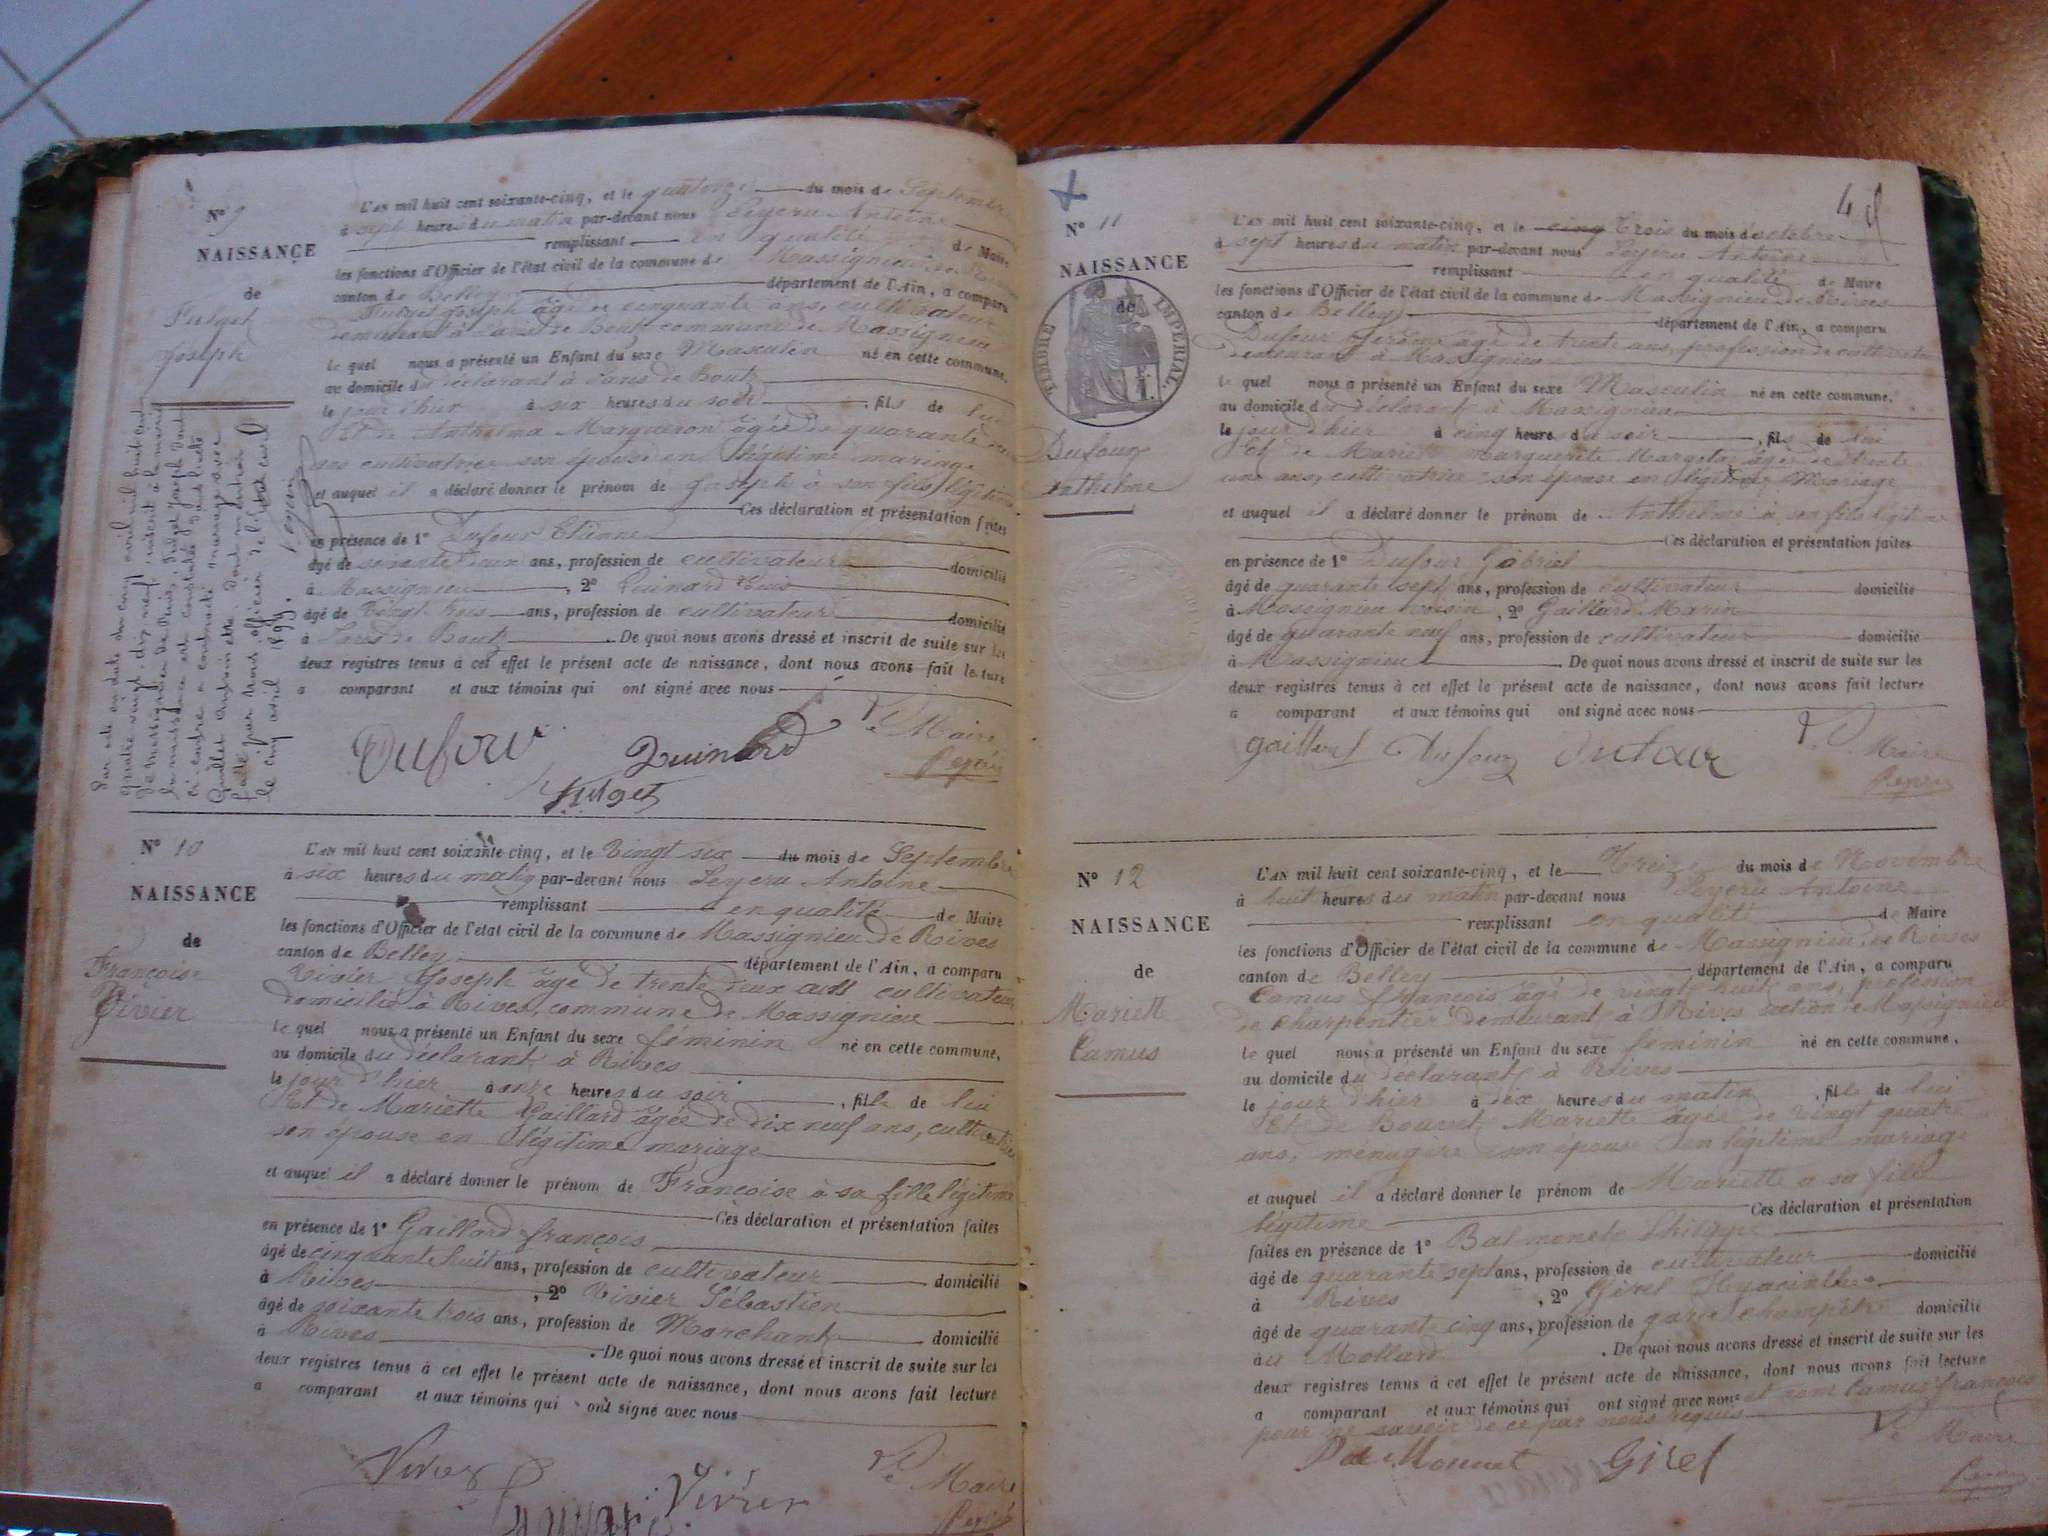 N° 9
NAISSANCE
de
Futget
Joseph
L'AN mil huit cent soixante-cinq, et le quatorze du mois de Septembre
à sept heures du matin par-devant nous Peyeru Antoine
remplissant en qualité de Maire
les fonctions d'Officier de l'état civil de la commune de Massignieu de Rives
canton de Belley département de l'Ain, a comparu
Futget Joseph âgé de cinquante ans, cultivateur
demeurant à commune de Massignieu
le quel nous a présenté un Enfant du sexe Masculin né en cette commune,
au domicile du déclarant à
le jour d'hier à six heures du soir, fils de lui
Et de Anthelma Margueron âgée de quarante
ans cultivatrice son épouse en légitime mariage
et auquel il a déclaré donner le prénom de Joseph à son fils légitime
Ces déclaration et présentation faites
en présence de 1° Dufour Etienne
âgé de soixante deux ans, profession de cultivateur domicilié
à Massignieu, 2° Quinard
âgé de vingt trois ans, profession de cultivateur domicilié
à . De quoi nous avons dressé et inscrit de suite sur les
deux registres tenus à cet effet le présent acte de naissance, dont nous avons fait lecture
a comparant et aux témoins qui ont signé avec nous
Le Maire
Dufour Quinard
Futget
N° 10
NAISSANCE
de
Françoise
Vivier
L'AN mil huit cent soixante-cinq, et le Vingt six du mois de Septembre
à six heures du matin par-devant nous Peyeru Antoine
remplissant en qualité de Maire
les fonctions d'Officier de l'état civil de la commune de Massignieu de Rives
canton de Belley département de l'Ain, a comparu
Vivier Joseph âgé de trente deux ans cultivateur
domicilié à Rives, commune de Massignieu
le quel nous a présenté un Enfant du sexe féminin né en cette commune,
au domicile du déclarant à Rives
le jour d'hier à onze heures du soir, fille de lui
Et de Mariette Gaillard âgée de dix neuf ans, cultivatrice
son épouse en légitime mariage
et auquel il a déclaré donner le prénom de Françoise à sa fille légitime
Ces déclaration et présentation faites
en présence de 1° Gaillard françois
âgé de cinquante huit ans, profession de cultivateur domicilié
à Rives, 2° Vivier Sébastien
âgé de soixante trois ans, profession de Marchant domicilié
à Rives. De quoi nous avons dressé et inscrit de suite sur les
deux registres tenus à cet effet le présent acte de naissance, dont nous avons fait lecture
a comparant et aux témoins qui ont signé avec nous
Vivier Le Maire
Vivier
N° 11
NAISSANCE
de
TIMBRE IMPÉRIAL
Dufour
Anthelme
L'AN mil huit cent soixante-cinq, et le cinq Trois du mois de octobre
à sept heures du matin par-devant nous Peyeru Antoine
remplissant en qualité de Maire
les fonctions d'Officier de l'état civil de la commune de Massignieu de Rives
canton de Belley département de l'Ain, a comparu
Dufour Jérôme âgé de trente ans, profession de cultivateur
demeurant à Massignieu
le quel nous a présenté un Enfant du sexe Masculin né en cette commune,
au domicile du déclarant à Massignieu
le jour d'hier à cinq heures du soir, fils de lui
Et de Mariette Marguerite âgée de trente
une ans, cultivatrice son épouse en légitime Mariage
et auquel il a déclaré donner le prénom de Anthelme à son fils légitime
Ces déclaration et présentation faites
en présence de 1° Dufour Gabriel
âgé de quarante sept ans, profession de cultivateur domicilié
à Massignieu voisin, 2° Gaillard Marin
âgé de quarante neuf ans, profession de cultivateur domicilié
à Massignieu. De quoi nous avons dressé et inscrit de suite sur les
deux registres tenus à cet effet le présent acte de naissance, dont nous avons fait lecture
a comparant et aux témoins qui ont signé avec nous
gaillard Dufour Dufour Le Maire
N° 12
NAISSANCE
de
Mariette
Camus
L'AN mil huit cent soixante-cinq, et le Treize du mois de Novembre
à huit heures du matin par-devant nous Peyeru Antoine
remplissant en qualité de Maire
les fonctions d'Officier de l'état civil de la commune de Massignieu de Rives
canton de Belley département de l'Ain, a comparu
Camus François âgé de vingt huit ans, profession
de charpentier demeurant à Rives section de Massignieu
le quel nous a présenté un Enfant du sexe féminin né en cette commune,
au domicile du déclarant à Rives
le jour d'hier à dix heures du matin, fille de lui
Et de Bouvet Mariette âgée de vingt quatre
ans, ménagère son épouse en légitime mariage
et auquel il a déclaré donner le prénom de Mariette a sa fille
légitime Ces déclaration et présentation
faites en présence de 1° Philippe
âgé de quarante sept ans, profession de cultivateur domicilié
à Rives, 2° Girel Hyacinthe
âgé de quarante cinq ans, profession de garde champêtre domicilié
au Mollard. De quoi nous avons dressé et inscrit de suite sur les
deux registres tenus à cet effet le présent acte de naissance, dont nous avons fait lecture
a comparant et aux témoins qui ont signé avec nous et non Camus françois
pour ne savoir de ce par nous requis
Le Maire
Girel